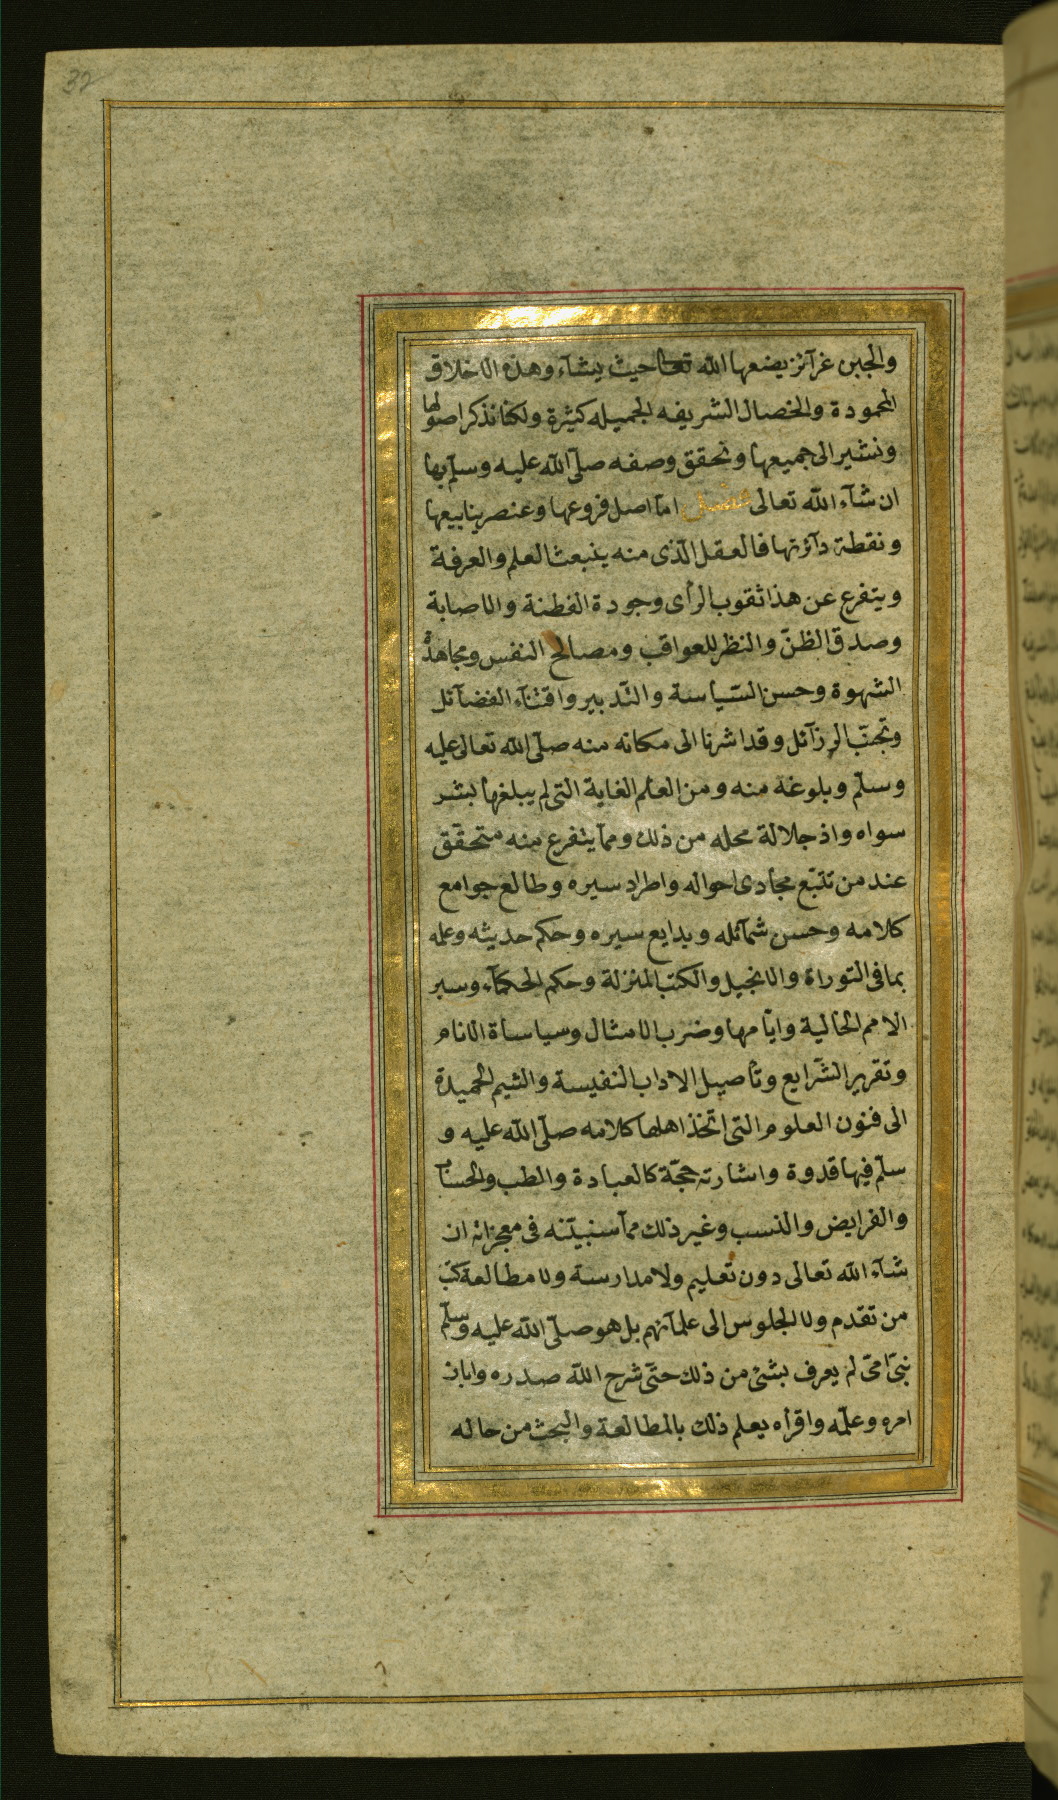 32
والجبن غرآئز يضعها الله تعالى حيث يشآء وهذه الاخلاق
المحمودة والخصال الشريفه الجميله كثيرة ولكنا نذكر اصولها
ونشير الى جميعها ونحقق وصفه صلّى الله عليه وسلّم بها
ان شآء الله تعالى فصل امّا اصل فروعها وعنصر ينابيعها
ونقطة دآئرتها فالعقل الّذى منه ينبعث العلم والمعرفة
ويتفرع عن هذا ثقوب الرأى وجودة الفطنة والاصابة
وصدق الظنّ والنظر للعواقب ومصالح النفس ومجاهدة
الشهوة وحسن السّياسة والتّدبير واقتنآء الفضآئل
وتجنّب الرزآئل وقد اشرنا الى مكانه منه صلّى الله تعالى عليه
وسلّم وبلوغه منه ومن العلم الغاية التى لم يبلغها بشر
سواه واذ جلالة محله من ذلك وممّا يتفرع منه متحقّق
عند من تتبّع مجارى احواله واطراد سيره وطالع جوامع
كلامه وحسن شمآئله وبدايع سيره وحكم حديثه وعلمه
بما فى التوراة والانجيل والكتب المنزلة وحكم الحكمآء وسير
الامم الخالية وايّامها وضرب الامثال وسياساة الانام
وتقرير الشّرايع وتأصيل الاداب النفيسة والشيم الحميدة
الى فنون العلوم التى اتّخذ اهلها كلامه صلّى الله عليه و
سلّم فيها قدوة واشارته حجّة كالعبادة والطب والحساب
والفرايض والنسب وغير ذلك ممّا سنبيّنه فى معجزاته ان
شآء الله تعالى دون تعليم ولا مدارسة ولا مطالعة كتب
من تقدم ولا الجلوس الى علمآئهم بل هو صلّى الله عليه وسلّم
نبىّ امّى لم يعرف بشئ من ذلك حتّى شرح الله صدره وابان
امره وعلّمه واقرأه يعلم ذلك بالمطالعة والبحث من حاله